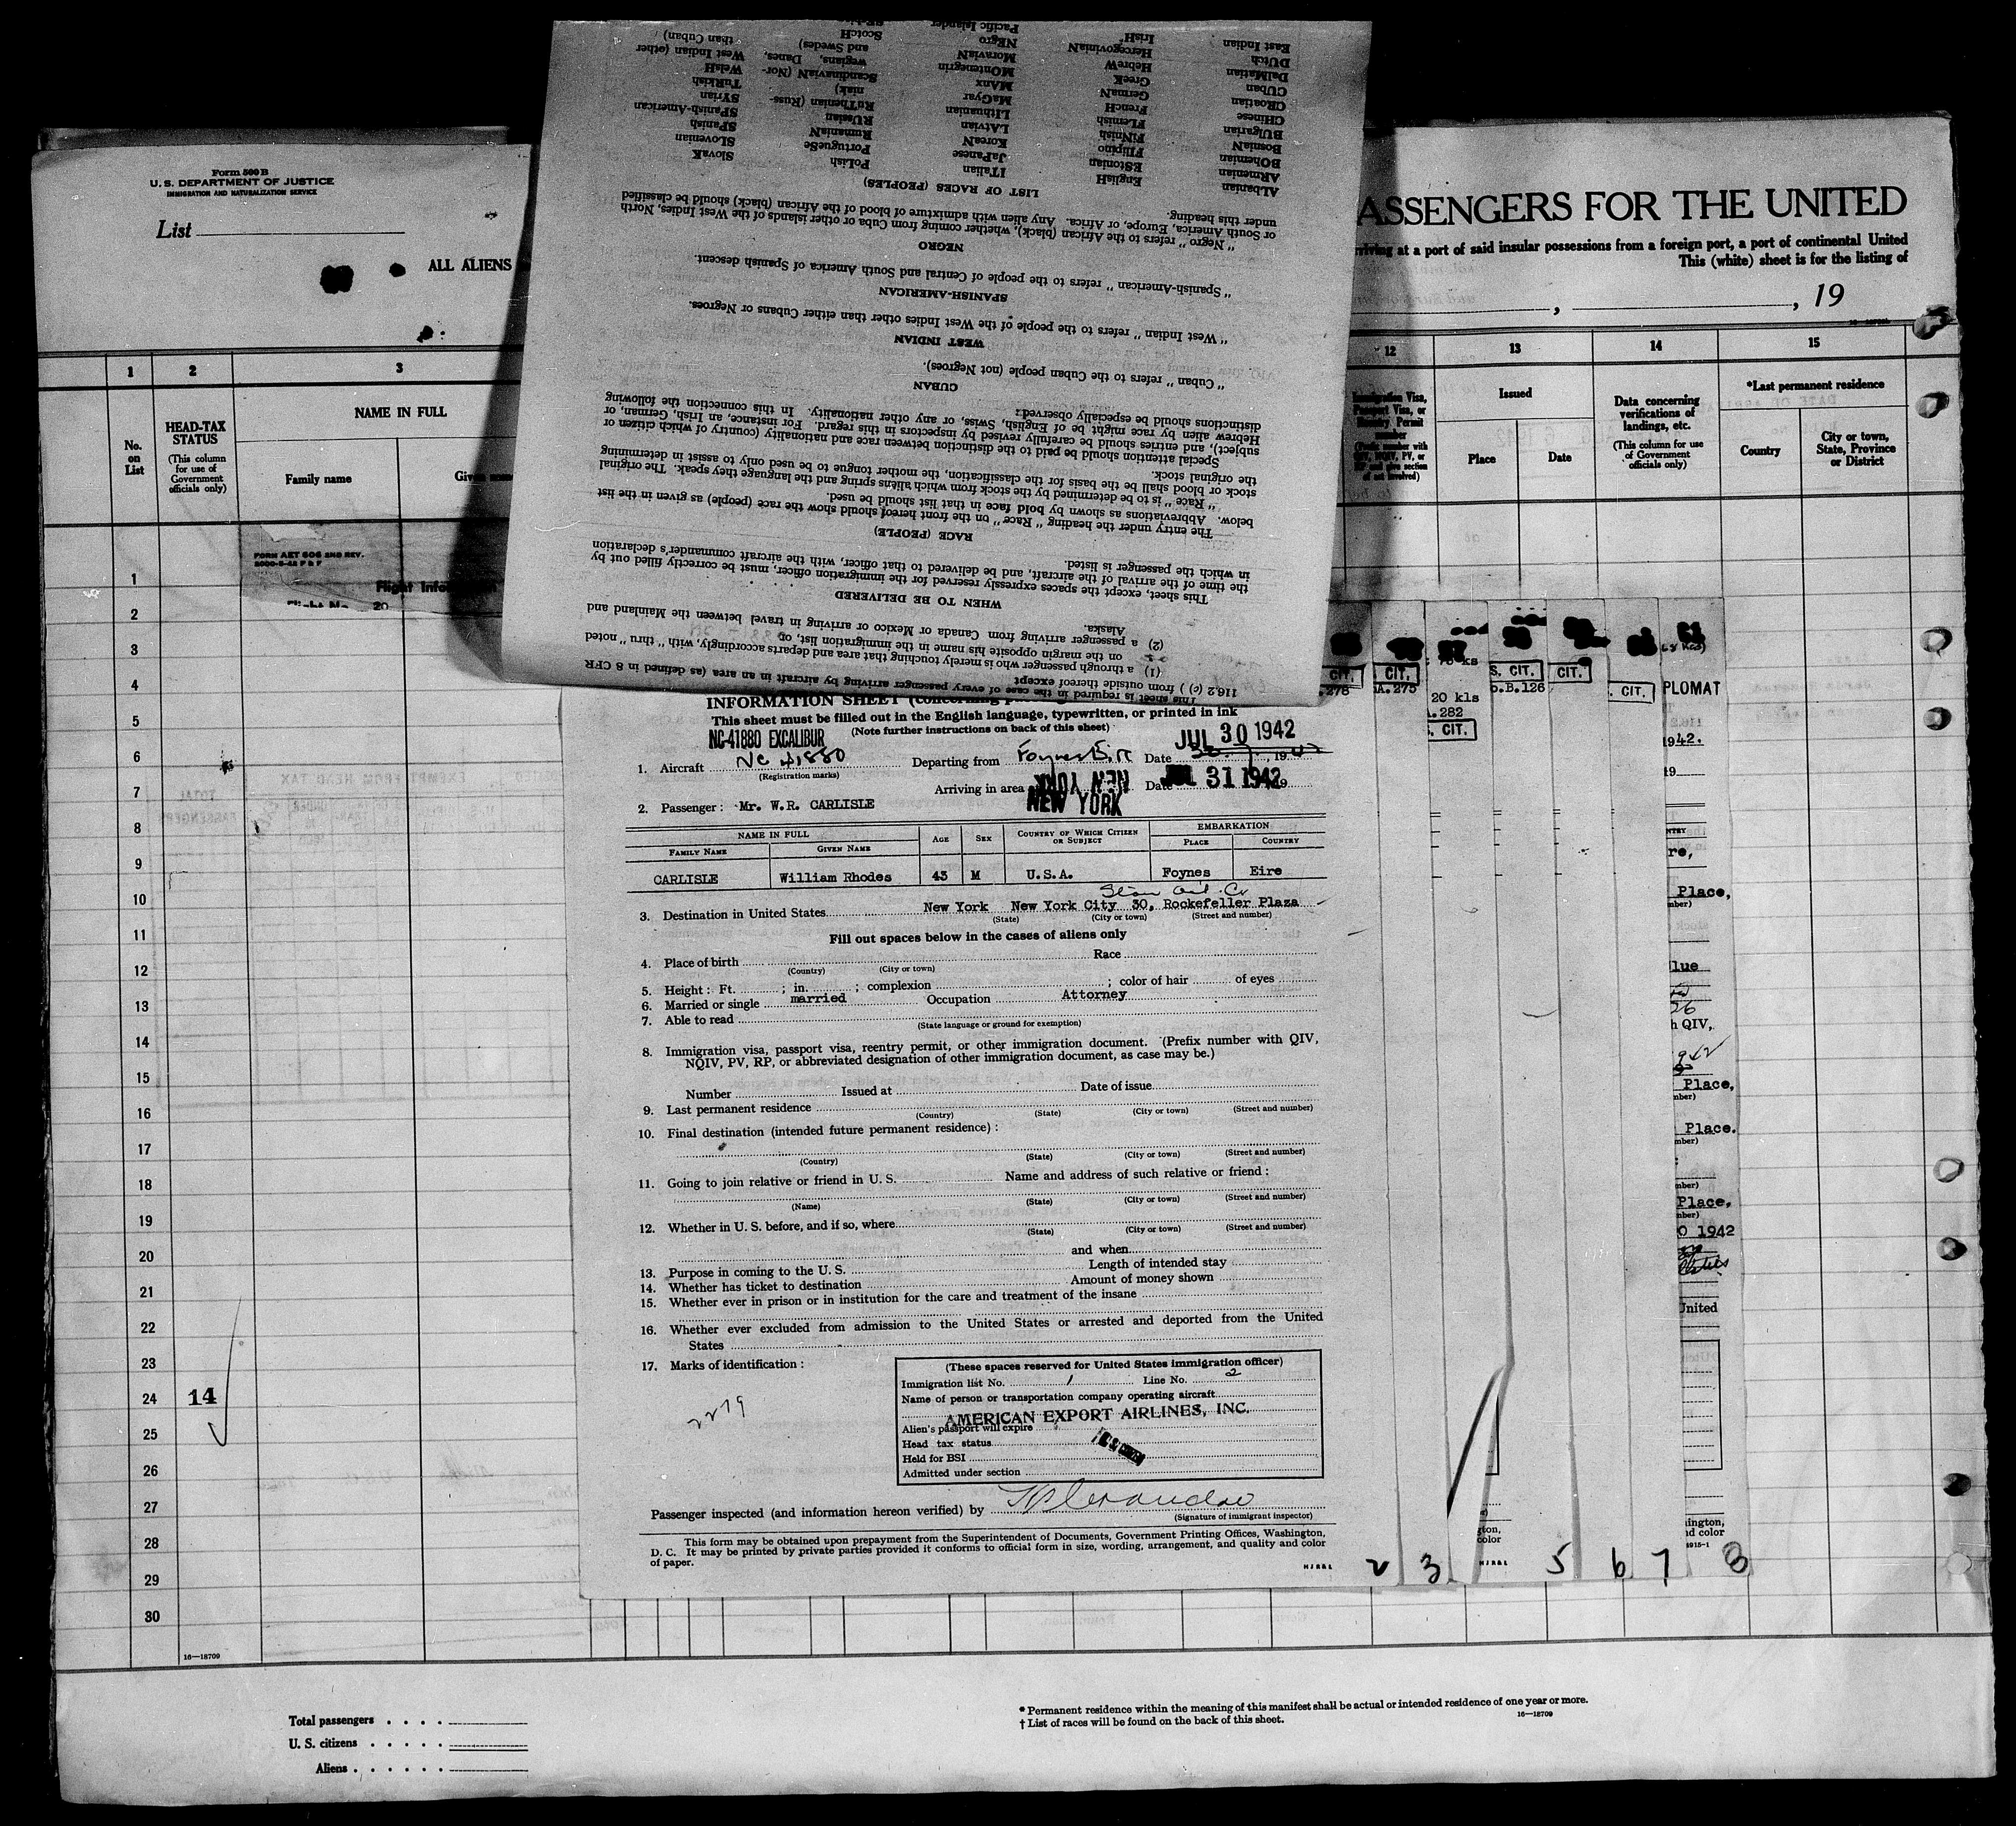 Form 500 B
U. S. DEPARTMENT OF JUSTICE
IMMIGRATION AND NATURALIZATION SERVICE
List
ALL ALIENS
ASSENGERS FOR THE UNITED
rriving at a port of said insular possessions from a foreign port, a port of continental United
This (white) sheet is for the listing of
, , 19
1 2 3
No. on List
HEAD-TAX STATUS
(This column for use of Government officials only)
NAME IN FULL
Family name
12 13 14 15
Immigration Visa, Passport Visa, or Reentry Permit number
Issued
Place Date
Data concerning verifications of landings, etc.
(This column for use of Government officials only)
*Last permanent residence
Country
City or town, State, Province or District
FORM AET 506 2ND REV.
Flight No. 20
1
2
3
4
5
6
7
8
9
10
11
12
13
14
15
16
17
18
19
20
21
22
23
24 14
25
26
27
28
29
30
16—18709
Total passengers
U. S. citizens
Aliens
* Permanent residence within the meaning of this manifest shall be actual or intended residence of one year or more.
† List of races will be found on the back of this sheet.
16—18709
This sheet is required in the case of every passenger arriving by aircraft in an area (as defined in 8 CFR
116.2 (c) ) from outside thereof except
(1) a through passenger who is merely touching that area and departs accordingly, with "thru" noted
on the margin opposite his name in the immigration list, or
(2) a passenger arriving from Canada or Mexico or arriving in travel between the Mainland and
Alaska.
WHEN TO BE DELIVERED
This sheet, except the spaces expressly reserved for the immigration officer, must be correctly filled out by
the time of the arrival of the aircraft, and be delivered to that officer, with the aircraft commander's declaration
in which the passenger is listed.
RACE (PEOPLE)
The entry under the heading "Race" on the front hereof should show the race (people) as given in the list
below. Abbreviations as shown by bold face in that list should be used.
"Race" is to be determined by the stock from which aliens spring and the language they speak. The original
stock or blood shall be the basis for the classification, the mother tongue to be used only to assist in determining
the original stock.
Special attention should be paid to the distinction between race and nationality (country of which citizen or
subject), and entries should be carefully revised by inspectors in this regard. For instance, an Irish, German, or
Hebrew alien by race might be of English, Swiss, or any other nationality. In this connection the following
distinctions should be especially observed:
CUBAN
"Cuban" refers to the Cuban people (not Negroes).
WEST INDIAN
"West Indian" refers to the people of the West Indies other than either Cubans or Negroes.
SPANISH-AMERICAN
"Spanish-American" refers to the people of Central and South America of Spanish descent.
NEGRO
"Negro" refers to the African (black), whether coming from Cuba or other islands of the West Indies, North
or South America, Europe, or Africa. Any alien with admixture of blood of the African (black) should be classified
under this heading.
LIST OF RACES (PEOPLES)
ALbanian EnglisH ITalian PoLish SlovaK
ARmenian EStonian JaPanese PortugueSe SLovenian
BOhemian FIlipino KoreaN RumaniaN SPanish
BosniaN FiNnish LAtvian RUssian SPanish-American
BUlgarian FLemish LIthuanian RuThenian (Russ- SYrian
CHinese FrencH MaGyar niak) TuRkish
CRoatian GermaN MAnx Scandinavian (Nor- WelsH
CUban GreeK MOntenegrin wegians, Danes, West Indian (other
DalMatian HebreW MoraviaN and Swedes) than Cuban)
DUtch HercegoviniaN NEgro ScotcH
East Indian IrisH Pacific Islander
INFORMATION SHEET (concerning
This sheet must be filled out in the English language, typewritten, or printed in ink
(Note further instructions on back of this sheet)
NC-41880 EXCALIBUR
JUL 30 1942
1. Aircraft NC 41880 Departing from Foynes Eire Date , 194
(Registration marks)
Arriving in area NEW YORK Date JUL 31 1942
NEW YORK
2. Passenger: Mr. W.R. CARLISLE
NAME IN FULL AGE SEX COUNTRY OF WHICH CITIZEN OR SUBJECT EMBARKATION
FAMILY NAME GIVEN NAME PLACE COUNTRY
CARLISLE William Rhodes 43 M U.S.A. Foynes Eire
3. Destination in United States New York New York City 30, Rockefeller Plaza
(State) (City or town) (Street and number)
Fill out spaces below in the cases of aliens only
4. Place of birth Race
(Country) (City or town)
5. Height: Ft. ; in. ; complexion ; color of hair of eyes
6. Married or single married Occupation Attorney
7. Able to read
(State language or ground for exemption)
8. Immigration visa, passport visa, reentry permit, or other immigration document. (Prefix number with QIV,
NQIV, PV, RP, or abbreviated designation of other immigration document, as case may be.)
Number Issued at Date of issue
9. Last permanent residence
(Country) (State) (City or town) (Street and number)
10. Final destination (intended future permanent residence):
(Country) (State) (City or town) (Street and number)
11. Going to join relative or friend in U. S. Name and address of such relative or friend:
(Name) (State) (City or town) (Street and number)
12. Whether in U. S. before, and if so, where
(State) (City or town) (Street and number)
and when
13. Purpose in coming to the U. S. Length of intended stay
14. Whether has ticket to destination Amount of money shown
15. Whether ever in prison or in institution for the care and treatment of the insane
16. Whether ever excluded from admission to the United States or arrested and deported from the United
States
17. Marks of identification:
2279
(These spaces reserved for United States immigration officer)
Immigration list No. 1 Line No. 2
Name of person or transportation company operating aircraft
AMERICAN EXPORT AIRLINES, INC.
Alien's passport will expire
Head tax status
Held for BSI
Admitted under section
Passenger inspected (and information hereon verified) by
(Signature of immigrant inspector)
This form may be obtained upon prepayment from the Superintendent of Documents, Government Printing Offices, Washington,
D. C. It may be printed by private parties provided it conforms to official form in size, wording, arrangement, and quality and color
of paper.
2 3 5 6 7 8
CIT. CIT. S. CIT. CIT. . CIT. PLOMAT
.276 A.275 20 kls .B.126
.282
. CIT.
1942.
19
re,
Place,
lue
h QIV,
Place,
Place.
Place,
0 1942
United
ington,
nd color
gton,
color